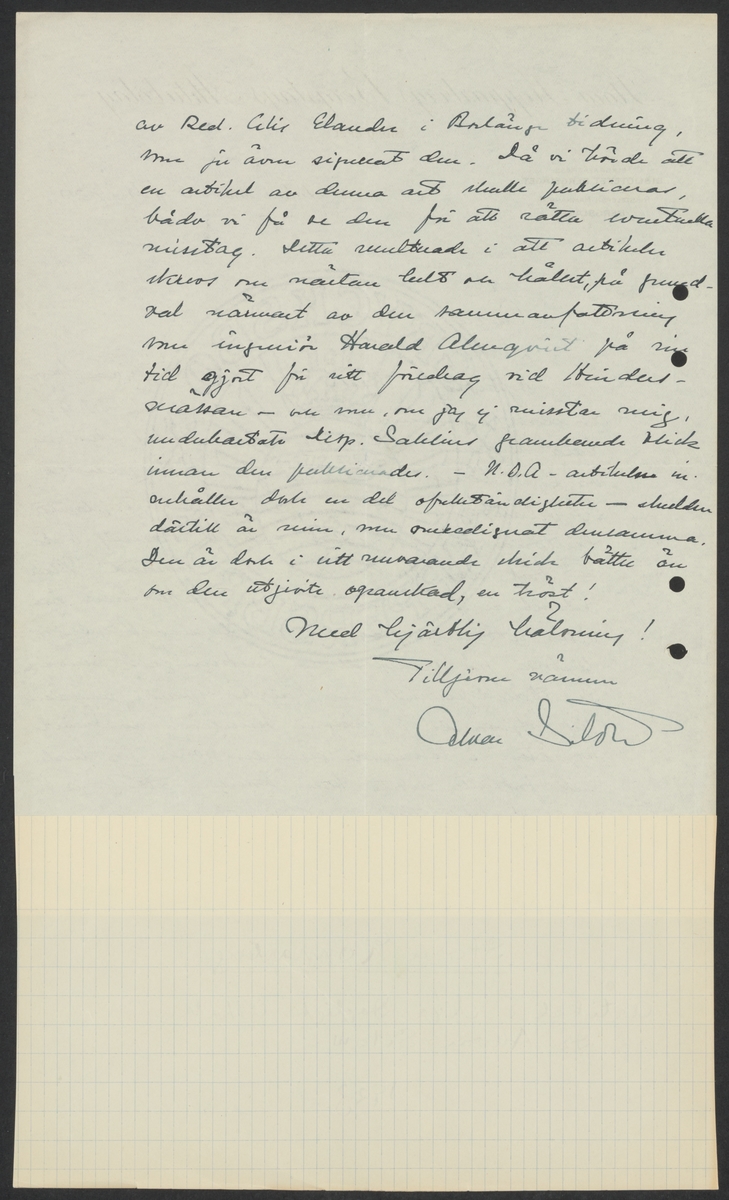 av Red. Atis Elander i Borlänge tidning,
som ju även signerat den. Då vi hörde att
en artikel av denna art skulle publiceras,
bådo vi få se den för att rätta eventuella
misstag. Detta resulterade i att artikeln
skrevs om nästan helt och hållet, på grund-
val närmast av den sammanfattning
som ingeniör Harald Almqvist på sin
tid gjort för sitt föredrag vid Hinders-
mässan — och som, om jag ej misstar mig,
underkastats Disp. Sahlins granskande blick
innan den publicerades. — N.D.A - artikeln in-
nehåller dock en del ofullständigheter — skulden
därtill är min, som omredigerat densamma.
Den är dock i sitt nuvarande skick bättre än
om den utgivits ogranskad, en tröst!
Med hjärtlig hälsning!
Tillgivne vännen